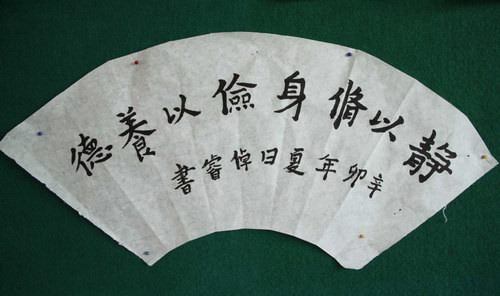 靜以脩身儉以養德
辛卯年夏日倬睿書